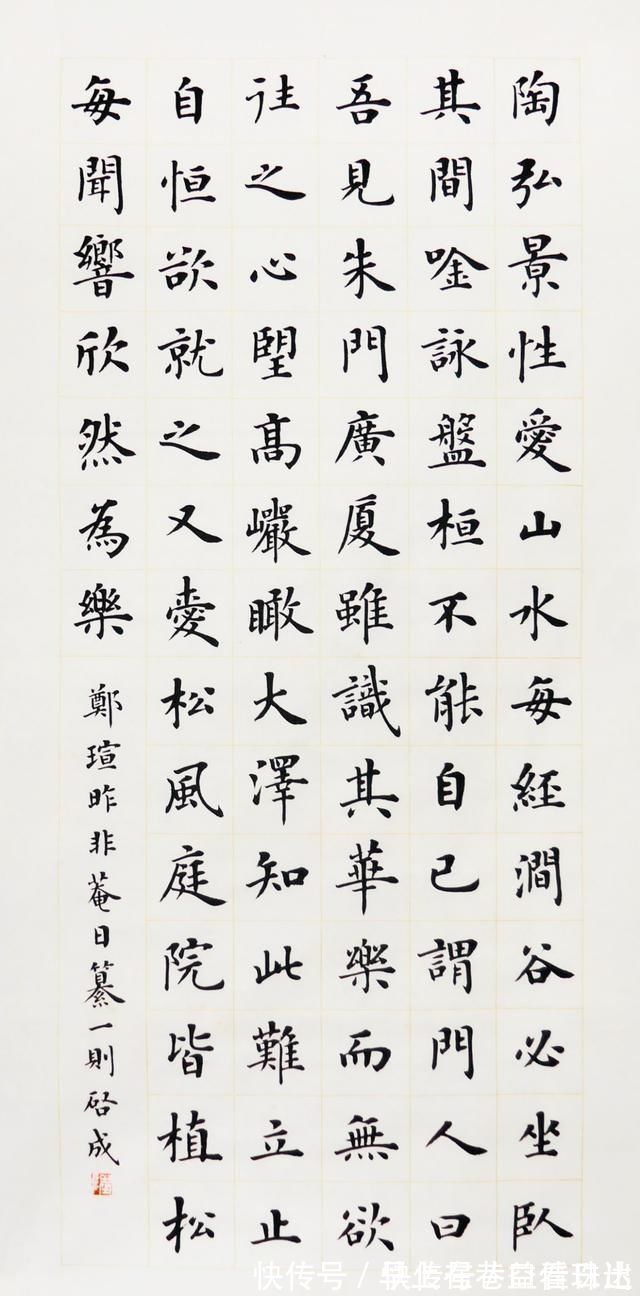 陶弘景性愛山水每經澗谷必坐臥
其間唫詠盤桓不能自已謂門人曰
吾見朱門廣厦雖識其華樂而無欲
往之心望高巖瞰大澤知此難立止
自恒欲就之又愛松風庭院皆植松
每聞響欣然為樂
鄭瑄昨非菴日纂一則啓成
快传号/